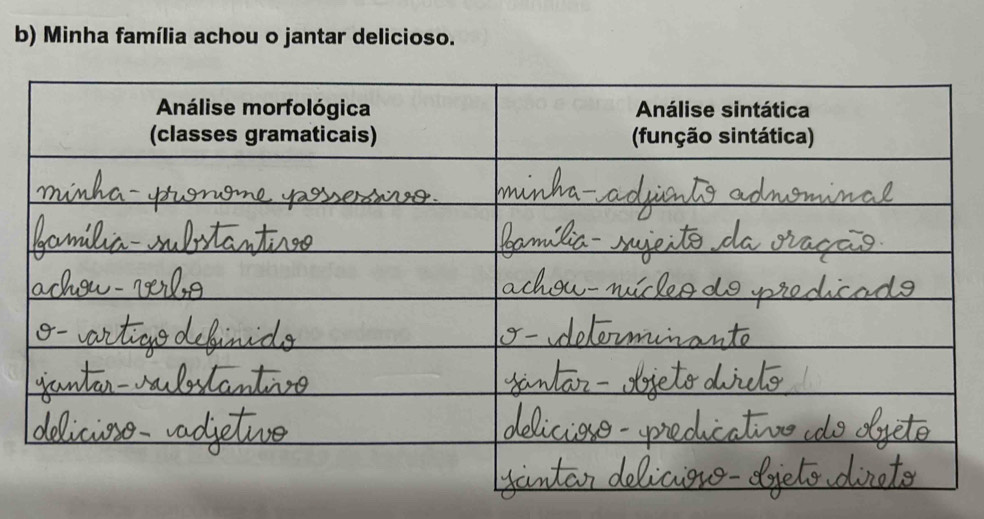 b) Minha família achou o jantar delicioso.
Análise morfológica
(classes gramaticais)
Análise sintática
(função sintática)
minha - pronome possessivo.
minha - adjunto adnominal
família - substantivo
família - sujeito da oração.
achou - verbo
achou - núcleo do predicado
o - artigo definido
o - determinante
jantar - substantivo
jantar - objeto direto
delicioso - adjetivo
delicioso - predicativo do objeto
jantar delicioso - objeto direto